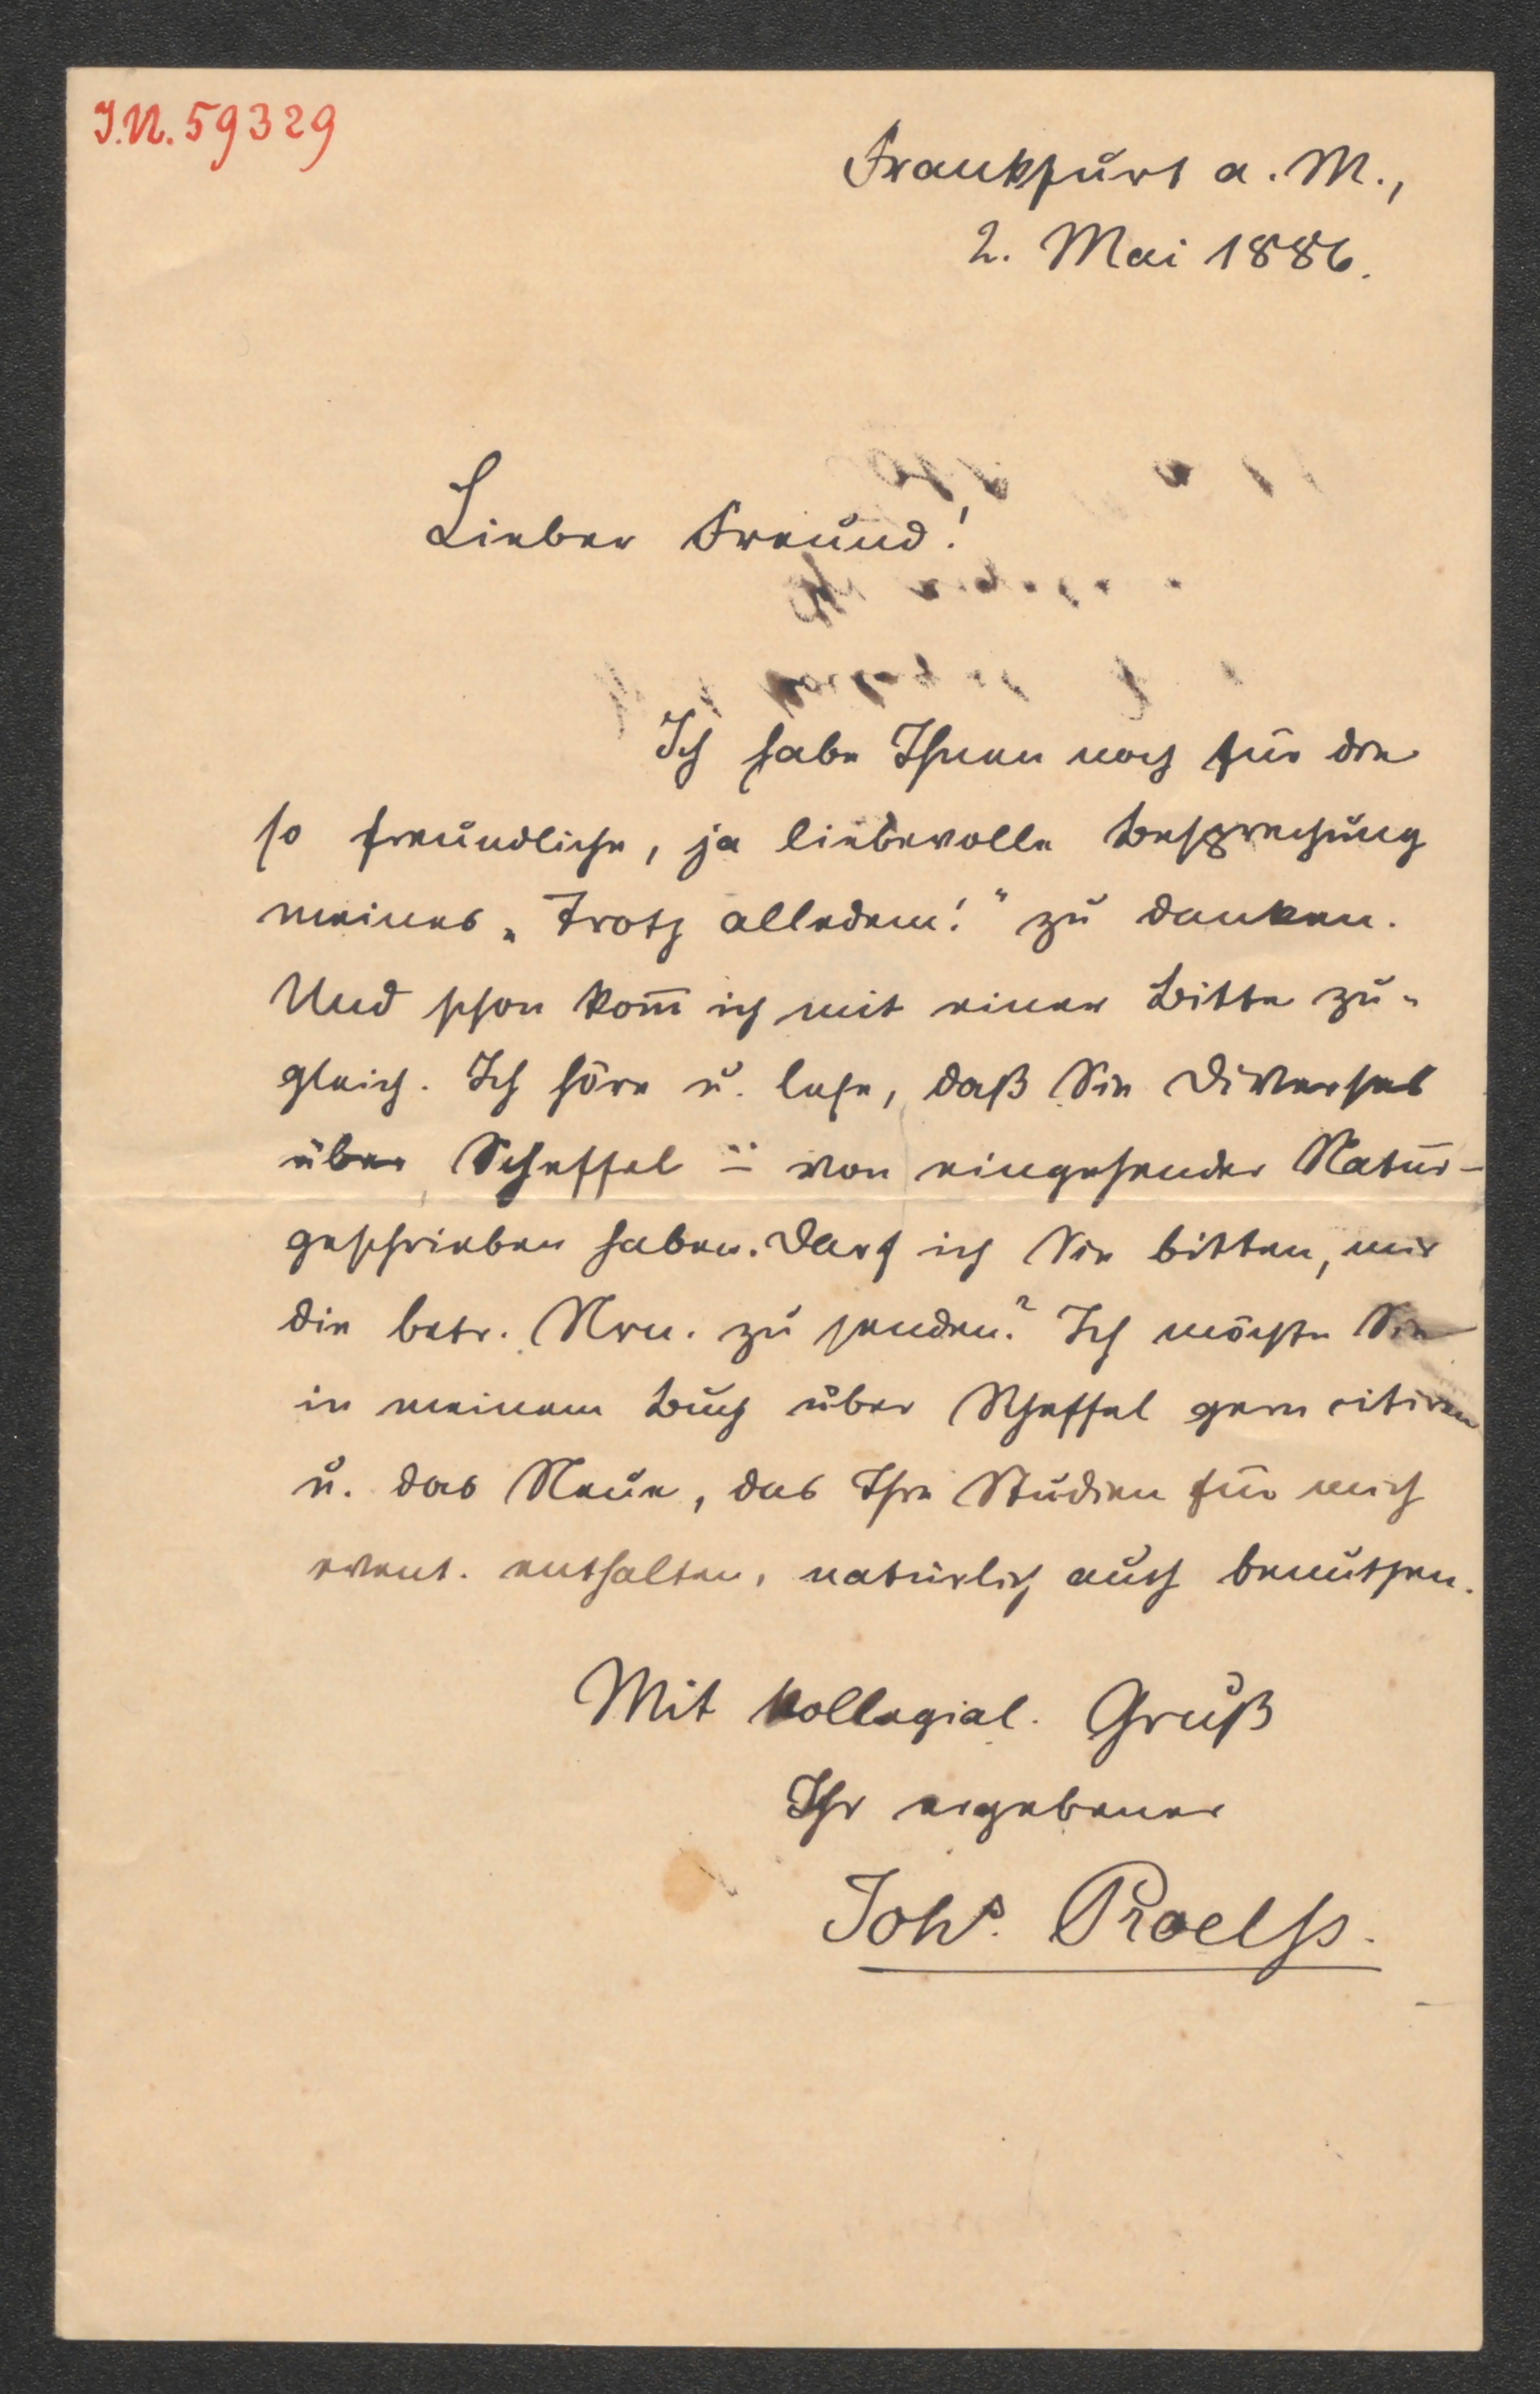 I.N. 59329
Frankfurt a. M.,
2. Mai 1886.
Lieber Freund!
Ich habe Ihnen noch für die
so freundliche, ja liebevolle Besprechung
meines „Trotz alledem!“ zu danken.
Und schon kom̅ ich mit einer Bitte zu-
gleich. Ich höre u. lese, daß Sie Diverses
über Scheffel – von eingehender Natur –
geschrieben haben. Darf ich Sie bitten, mir
die betr. Nrn. zu senden? Ich möchte Sie
in meinem Buch über Scheffel gern citiren
u. das Neue, das Ihre Studien für mich
event. enthalten, natürlich auch benutzen.
Mit kollegial. Gruß
Ihr ergebener
Johs. Proelss.